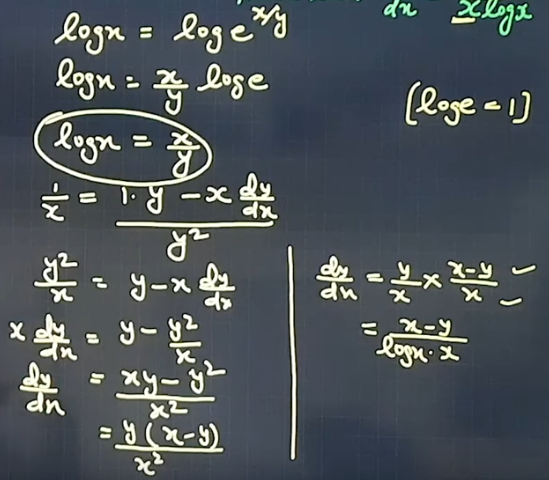 dx xlogx
logx = loge^x/y
logx = x/y loge
[loge = 1]
logx = x/y
1/x = (1·y - x dy/dx)/y²
y²/x = y - x dy/dx
x dy/dx = y - y²/x
dy/dx = (xy - y²)/x²
= y(x-y)/x²
dy/dx = y/x × (x-y)/x
= (x-y)/(logx·x)